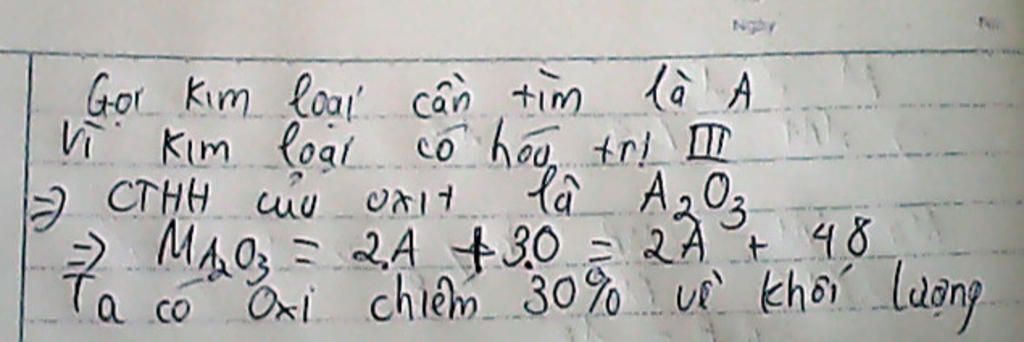 Ngày
No:
Gọi kim loại cần tìm là A
Vì kim loại có hóa trị III
⇒ CTHH của oxit là A₂O₃
⇒ M A₂O₃ = 2.A + 3.O = 2A + 48
Ta có Oxi chiếm 30% về khối lượng